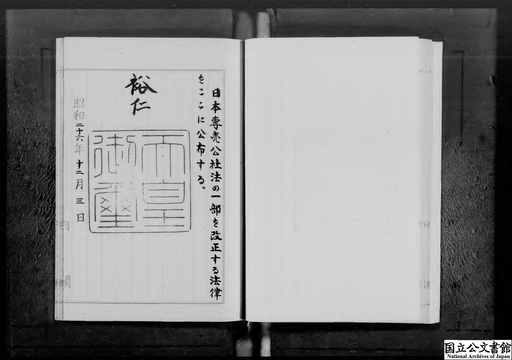 日本専売公社法の一部を改正する法律
をここに公布する。
裕仁
天皇
御璽
昭和二十六年十二月三日
国立公文書館
National Archives of Japan